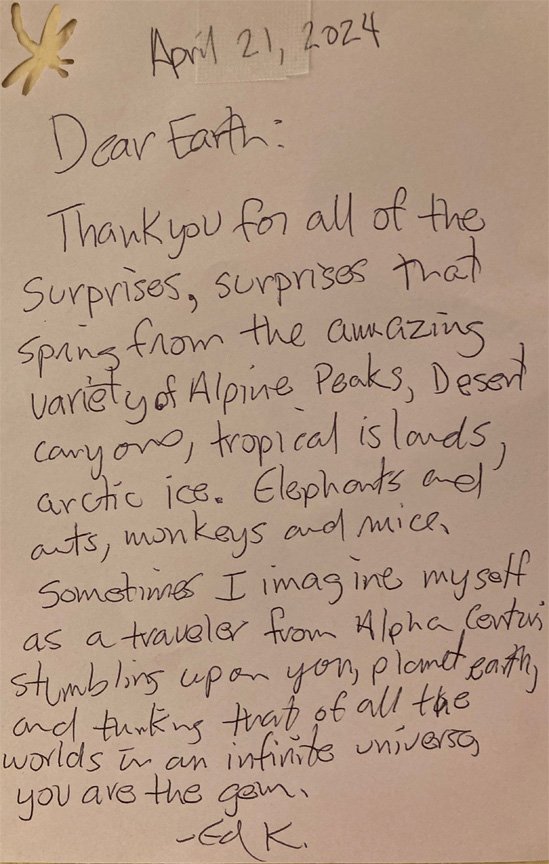 April 21, 2024
Dear Earth:
Thank you for all of the
surprises, surprises that
spring from the amazing
variety of Alpine Peaks, Desert
canyons, tropical islands,
arctic ice. Elephants and
ants, monkeys and mice.
Sometimes I imagine myself
as a traveler from Alpha Centuri
stumbling upon you, planet earth,
and thinking that of all the
worlds in an infinite universe,
you are the gem.
-Ed K.